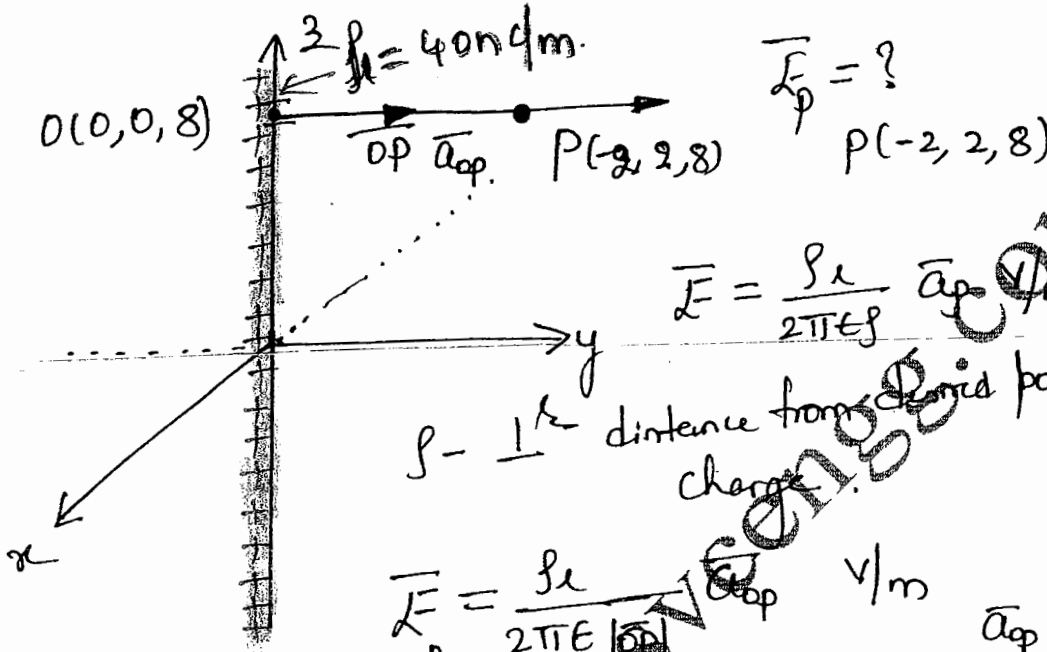 z ρl = 40nC/m.
Ēp = ?
O(0,0,8)
OP āop.
P(-2,2,8)
P(-2, 2, 8)
Ē = ρl / 2περ āρ V/
y
ρ - ⊥r distance from desired
charge.
x
Ēp = ρl / 2πε |OP| āop V/m
āop